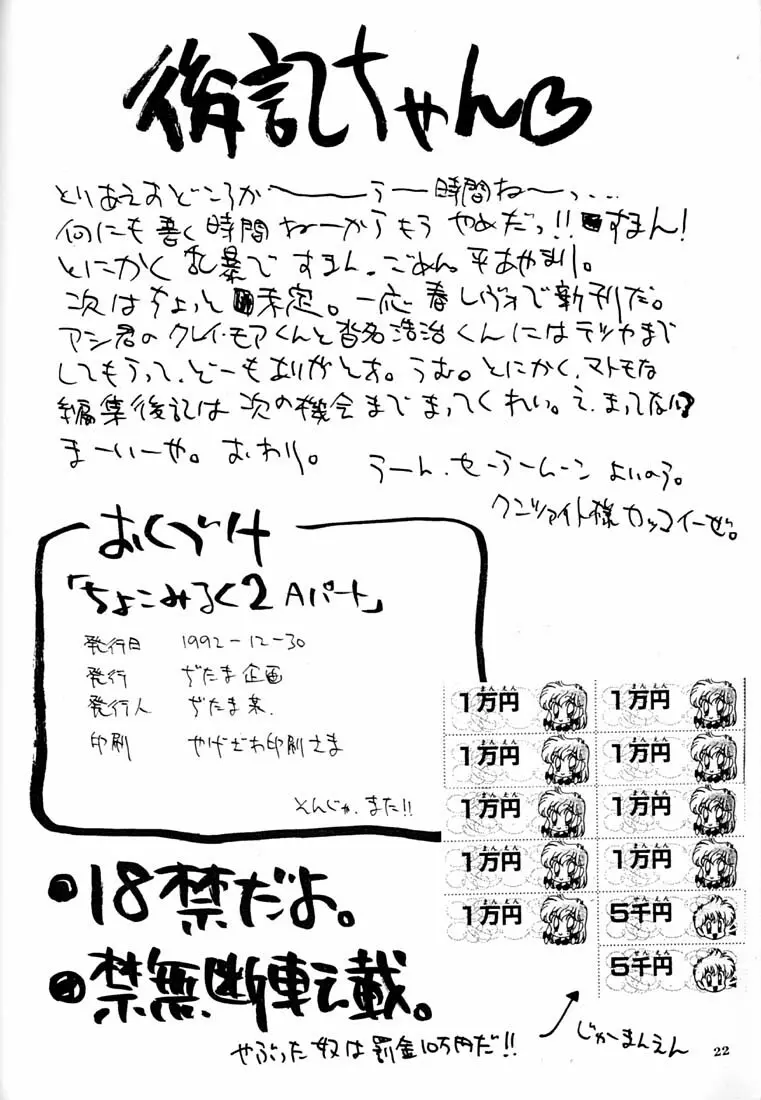 後記ちゃん♡
とりあえおどころかーーーうー時間ねーっ...
何にも書く時間ねーからもうやめだっ!!すまん!
とにかく乱暴ですまん、ごめん。平あやまり。
次はちょっと未定。一応春レヴォで新刊だ。
アシ君のクレイ・モアくんと沓名浩治くんにはテツヤまで
してもらって、どーもありがとお。うむ。とにかく、マトモな
編集後記は次の機会までまってくれい。え、まってない?
まーいーや。おわり。
うーん、セーラームーンよいのう。
クンツァイト様カッコイーぜ。
おくづけ
「ちょこみるく2 Aパート」
発行日 1992-12-30
発行 ぢたま企画
発行人 ぢたま某.
印刷 やげざわ印刷さま
そんじゃ、また!!
1万円 1万円
1万円 1万円
1万円 1万円
1万円 1万円
1万円 5千円
5千円
●18禁だよ。
●禁無断転載。
やぶった奴は罰金10万円だ!!
じゅーまんえん
22